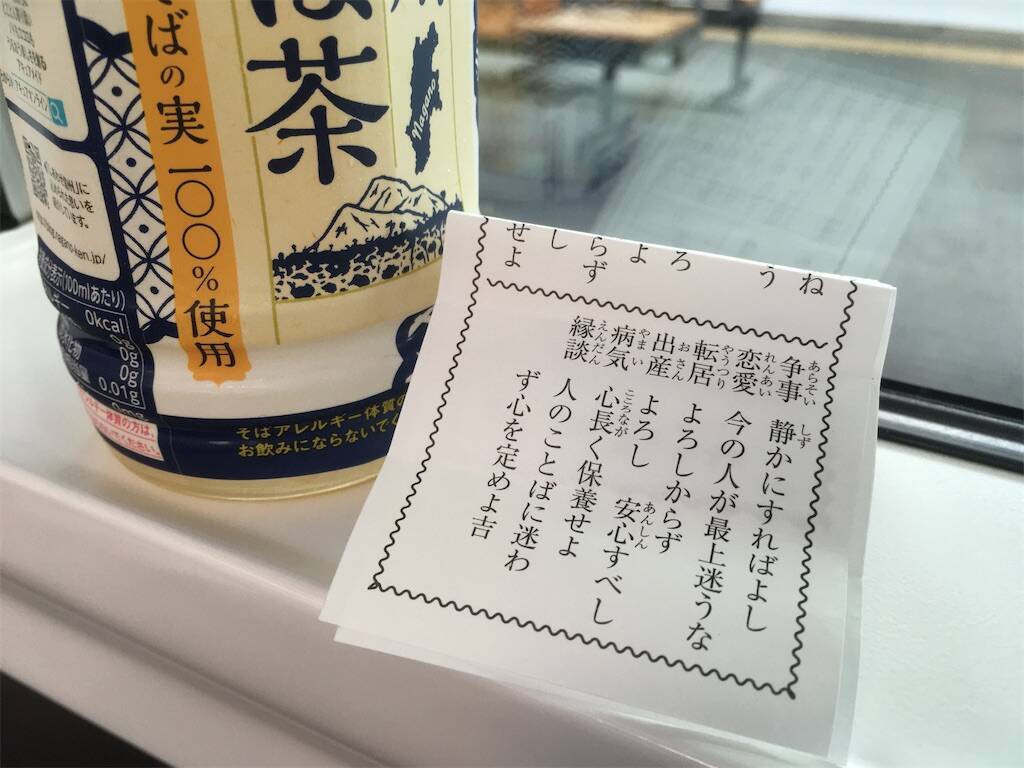 そばの実一〇〇%使用
ば茶
Nagano
に
います。
(100mlあたり)
0kcal
0g
0g
0g
0.01g
そばアレルギー体質の
お飲みにならないで
ね
う
よろ
らず
し
せよ
争事 静かにすればよし
あらそい しず
恋愛 今の人が最上迷うな
れんあい
転居 よろしからず
やうつり
出産 よろし 安心すべし
おさん あんしん
病気 心長く保養せよ
やまい こころなが
縁談 人のことばに迷わ
えんだん
ず心を定めよ吉